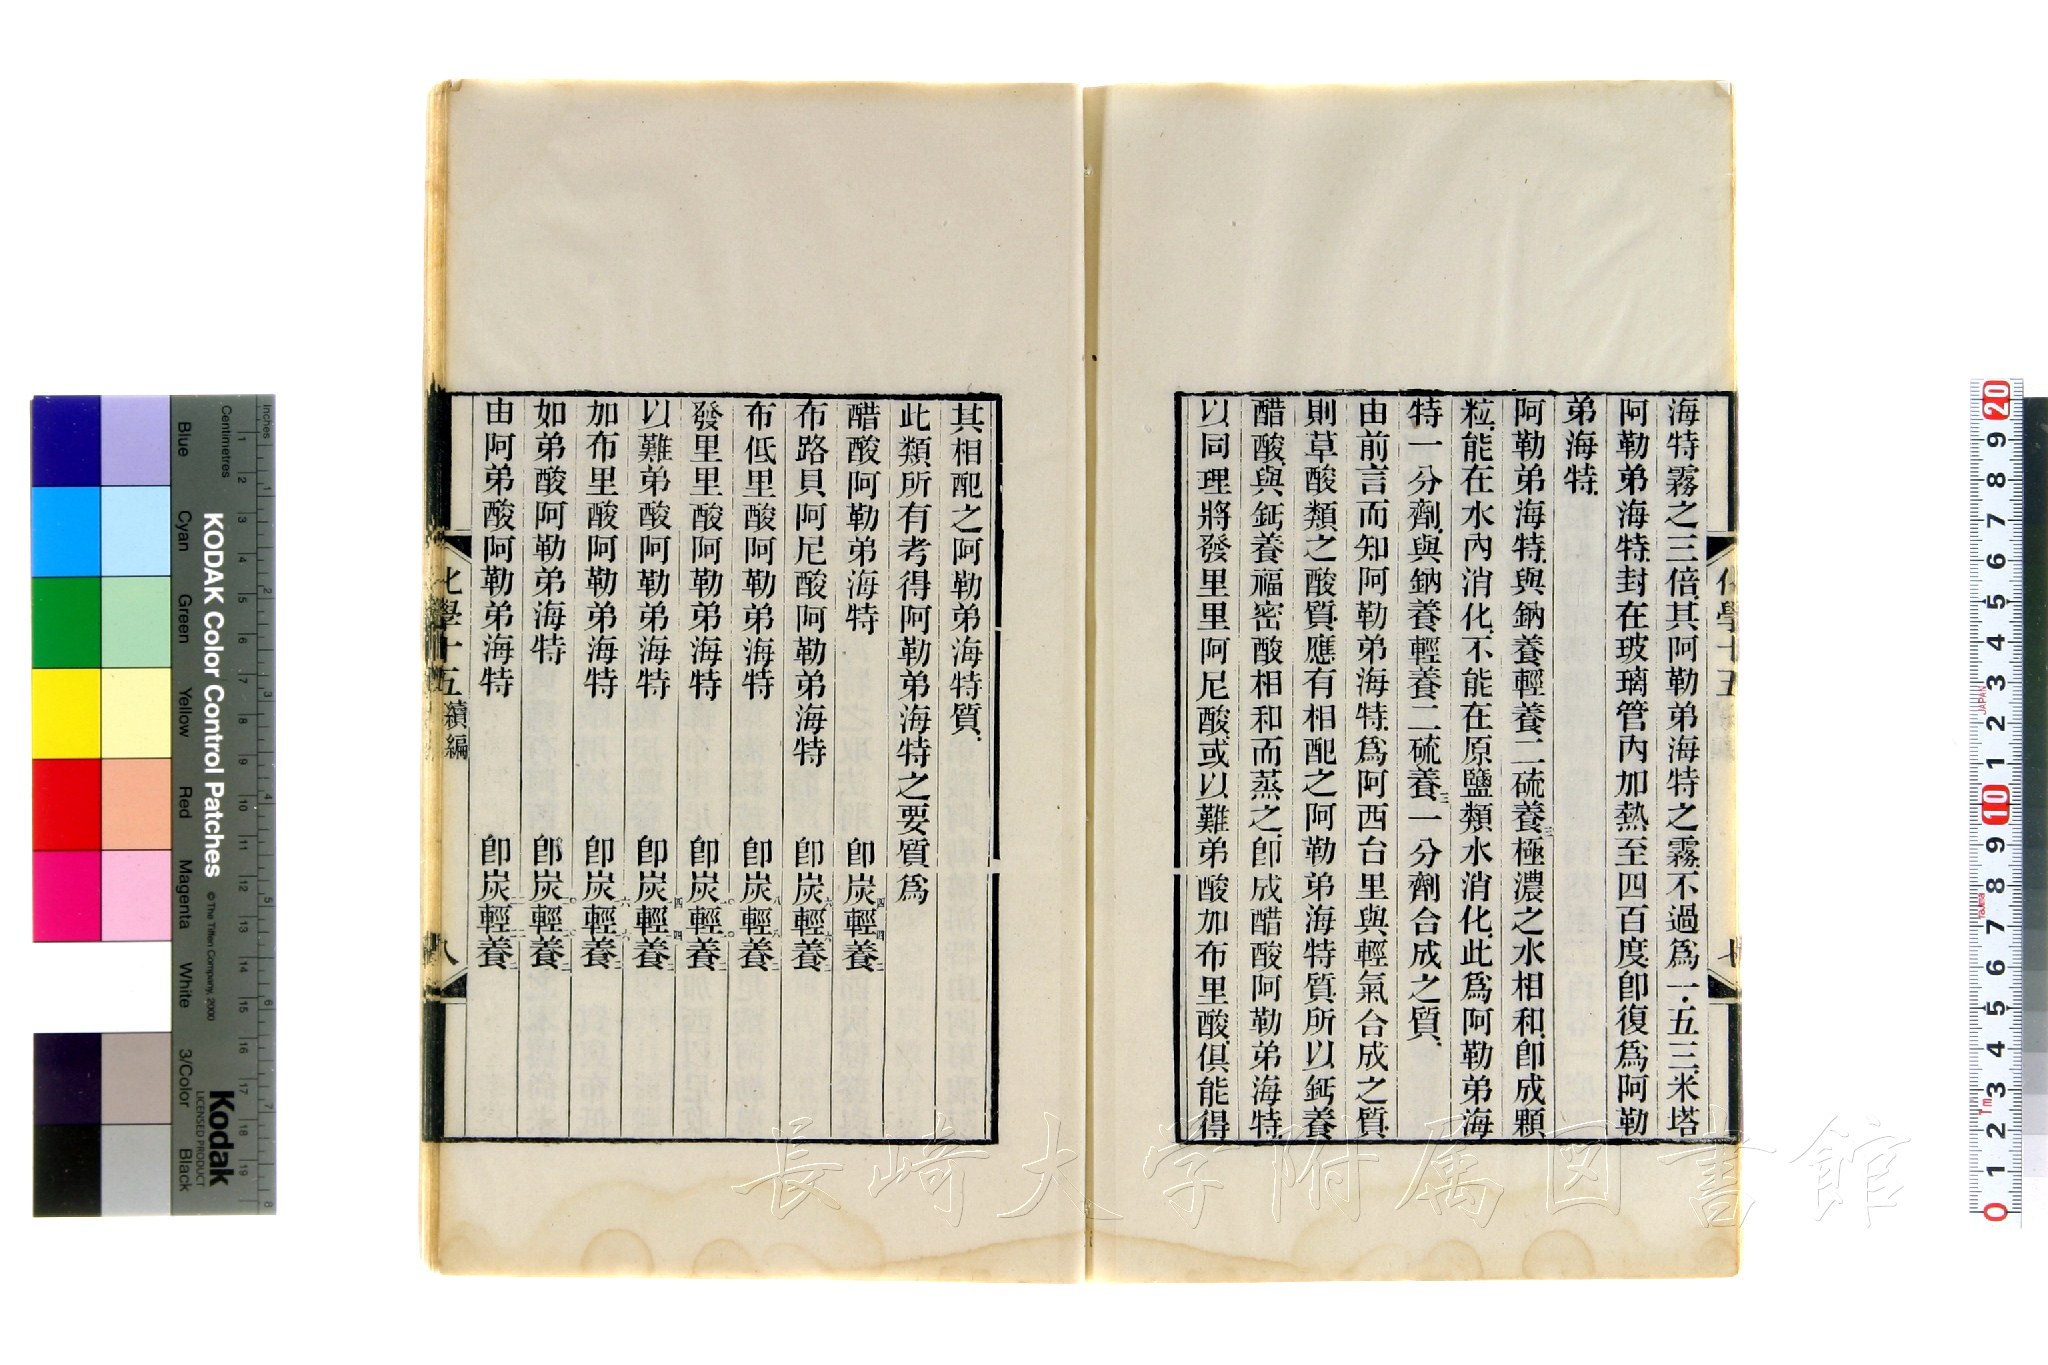 海特霧之三倍其阿勒弟海特之霧不過爲一五三米塔
阿勒弟海特封在玻璃管內加熱至四百度卽復爲阿勒
弟海特
阿勒弟海特與鈉養輕養二硫養三極濃之水相和卽成顆
粒能在水內消化不能在原鹽類水消化此爲阿勒弟海
特一分劑與鈉養輕養二硫養三一分劑合成之質
由前言而知阿勒弟海特爲阿西台里與輕氣合成之質
則草酸類之酸質應有相配之阿勒弟海特質所以鈣養
醋酸與鈣養福密酸相和而蒸之卽成醋酸阿勒弟海特
以同理將發里里阿尼酸或以難弟酸加布里酸俱能得
化學十五
七
其相配之阿勒弟海特質
此類所有考得阿勒弟海特之要質爲
醋酸阿勒弟海特 卽炭四輕四養二
布路貝阿尼酸阿勒弟海特 卽炭六輕六養二
布低里酸阿勒弟海特 卽炭八輕八養二
發里里酸阿勒弟海特 卽炭一〇輕一〇養二
以難弟酸阿勒弟海特 卽炭一四輕一四養二
加布里酸阿勒弟海特 卽炭一六輕一六養二
如弟酸阿勒弟海特 卽炭輕養二
由阿弟酸阿勒弟海特 卽炭輕養二
化學十五 續編
八
長崎大学附属図書館
KODAK Color Control Patches
© The Tiffen Company, 2000
Kodak
LICENSED PRODUCT
Inches
Centimetres
Blue
Cyan
Green
Yellow
Red
Magenta
White
3/Color
Black
1 2 3 4 5 6 7 8
1 2 3 4 5 6 7 8 9 10 11 12 13 14 15 16 17 18 19
20 9 8 7 6 5 4 3 2 1 10 9 8 7 6 5 4 3 2 1 0
JAPAN
Tajima
Tm